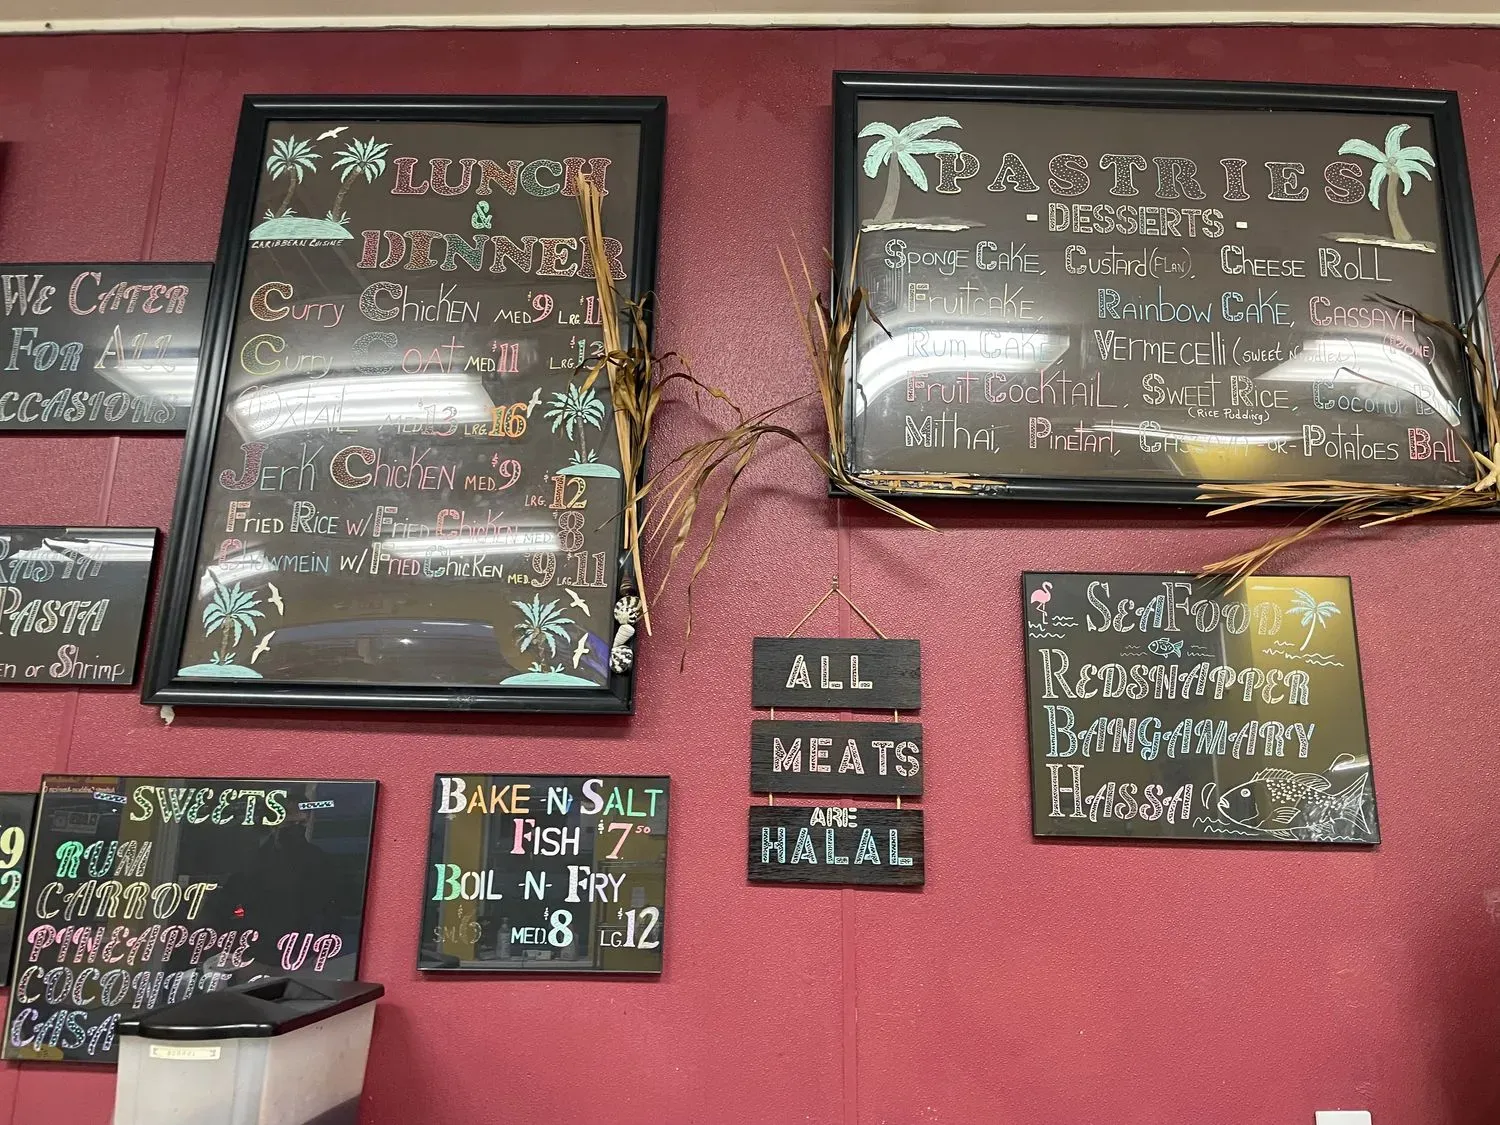 LUNCH
&
DINNER
CARIBBEAN CUISINE
Curry Chicken MED $9 LRG. $11
Curry Goat MED $11 LRG. $13
Oxtail MED $13 LRG. $16
Jerk Chicken MED. $9
LRG. $12
Fried Rice w/ Fried Chicken MED $8
Chowmein w/ Fried Chicken MED. $9 LRG. $11
PASTRIES
- DESSERTS -
Sponge Cake, Custard (Flan), Cheese Roll
Fruitcake, Rainbow Cake, Cassava
Rum Cake Vermecelli (sweet noodles) (Pone)
Fruit Cocktail, Sweet Rice, Coconut Bun
(Rice Pudding)
Mithai, Pinetart, Cassava -or- Potatoes Ball
We Cater
For All
ccasions
Rasta
Pasta
en or Shrimp
ALL
MEATS
ARE
HALAL
SeaFood
Redsnapper
Bangamary
Hassa
9
2
SWEETS
RUM
CARROT
PINEAPPLE UP
COCONUT
CASA
BAKE -N- SALT
FISH $7.50
BOIL -N- FRY
SM. MED. $8 LG. $12